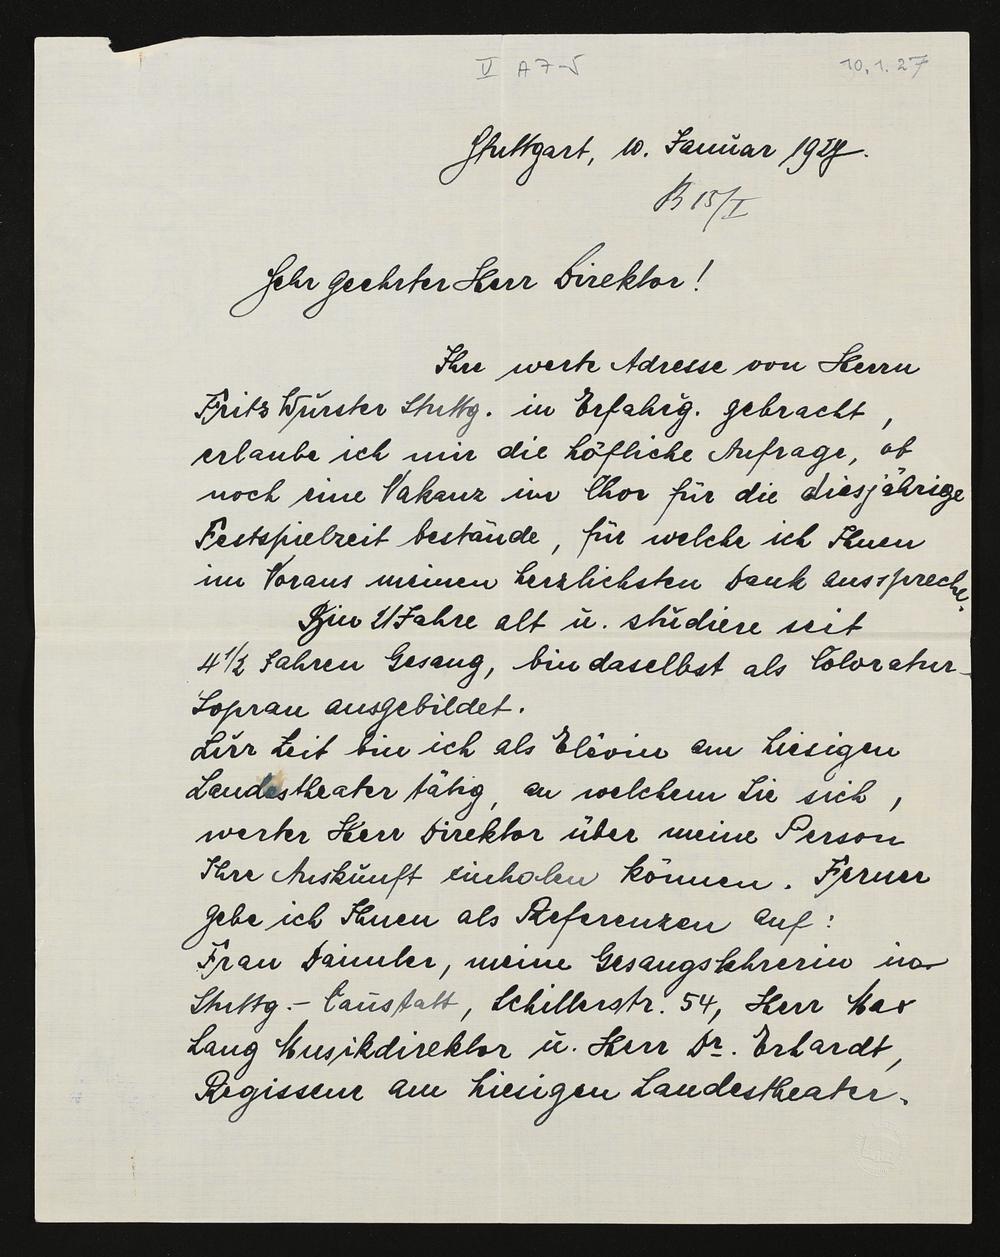 V A 7-5
10.1.27
Stuttgart, 10. Januar 1927.
B 15/I
Sehr geehrter Herr Direktor!
Ihre werte Adresse von Herrn
Fritz Wurster Stuttg. in Erfahrg. gebracht,
erlaube ich mir die höfliche Anfrage, ob
noch eine Vakanz im Chor für die diesjährige
Festspielzeit bestände, für welche ich Ihnen
im Voraus meinen herzlichsten Dank ausspreche.
Bin 21 Jahre alt u. studiere seit
4 1/2 Jahren Gesang, bin daselbst als Coloratur-
Sopran ausgebildet.
Zur Zeit bin ich als Elevin am hiesigen
Landestheater tätig, an welchem Sie sich,
werter Herr Direktor über meine Person
Ihre Auskunft einholen können. Ferner
gebe ich Ihnen als Referenzen auf:
Frau Daimler, meine Gesangslehrerin in
Stuttg.-Canstatt, Schillerstr. 54, Herr Max
Lang Musikdirektor u. Herr Dr. Erhardt,
Regisseur am hiesigen Landestheater.